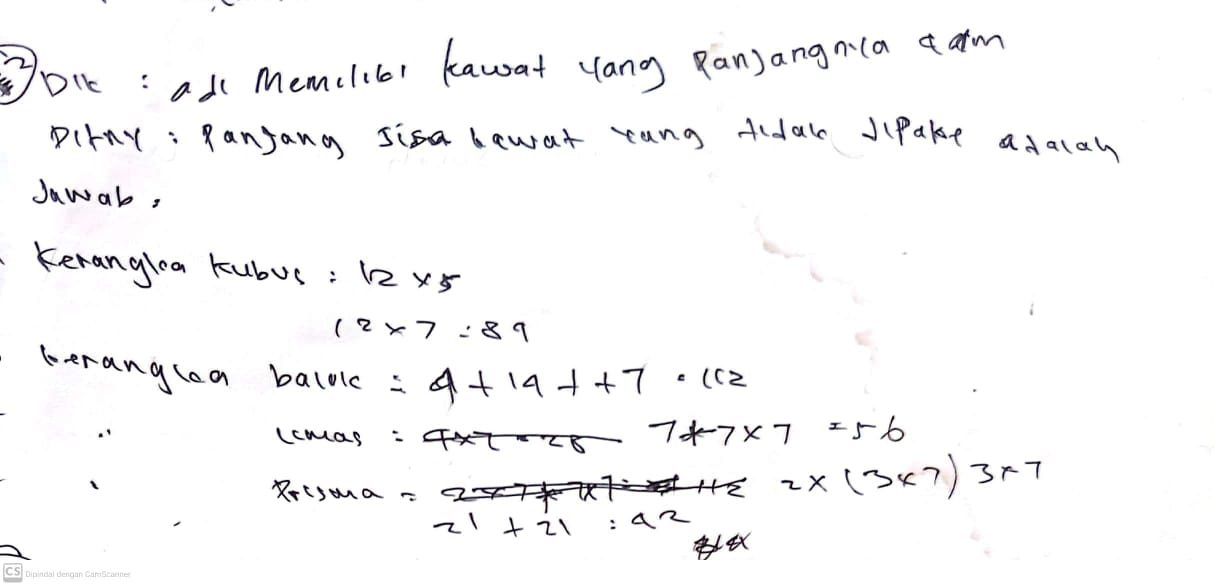 2) Dik : adi Memiliki kawat yang Panjangnya 4 dtm
Ditny : Panjang sisa kawat yang tidak dipake adalah
Jawab :
Kerangka kubus : 12 x 5
12 x 7 : 84
kerangka balok = 4 + 14 + + 7 = 112
" limas : 4x7 = 28 7+7x7 = 56
" Prisma = 2x (3x7) 3x7
21 + 21 : 42
CS Dipindai dengan CamScanner